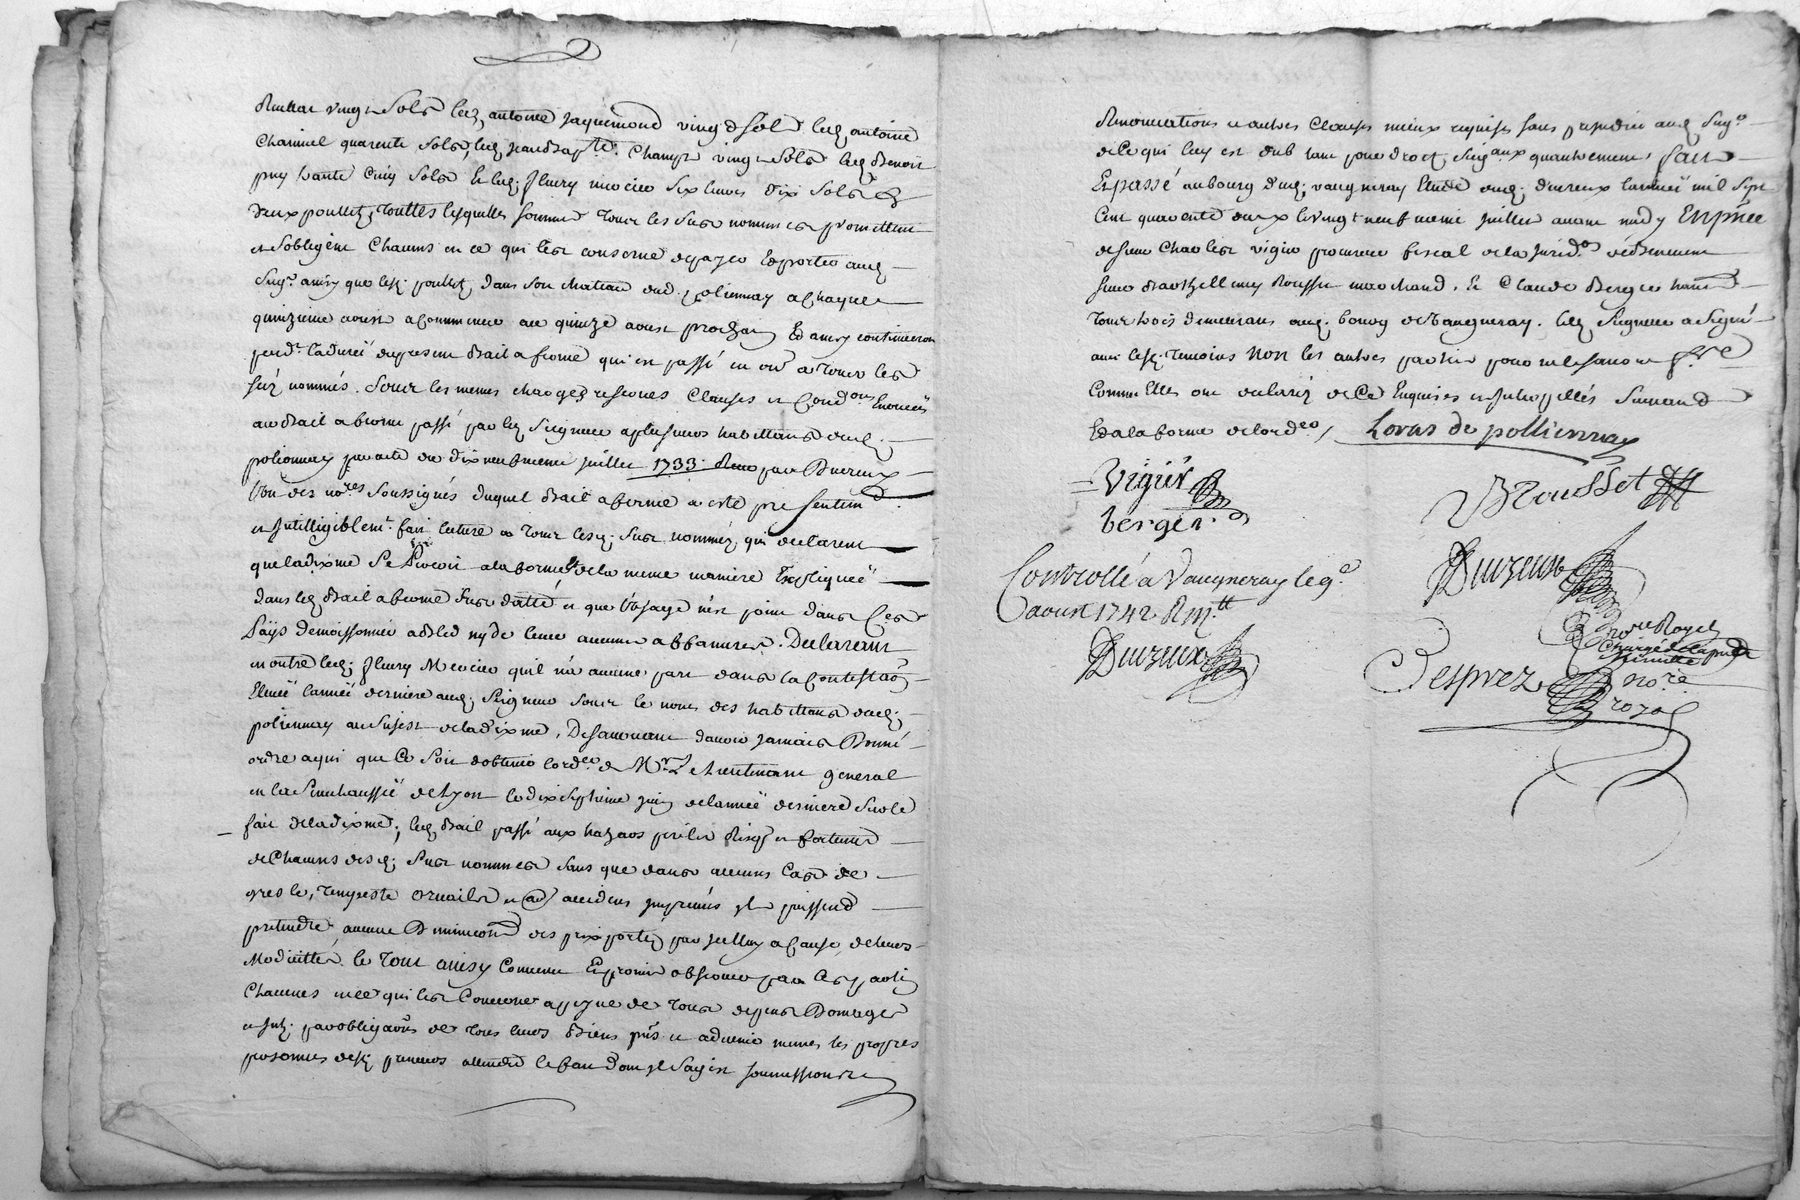 vingt sols led. antoine Jaquemond vingt sols led. antoine
Chamuel quarente sols, led. Jean Bapte. Champt vingt sols led. Benoit
cinq sols Et led. fleury mercier six livres dix sols &
deux poullets, touttes lesquelles sommes tous les susd nommes promettent
et sobligent Chacuns en ce qui les conserne de payer Et porter aud.
Seigr. ainsy que lesd. poullets, dans son chateau dud. polionnay a chaque
quinzieme aoust a commencer au quinze aoust prochain Et ainsy continueront
pendt. la dureé du present bail a ferme qui est passé en outre a tous les
sus nommés. sous les memes charges reserves Clauses et Condons. Enonceés
au bail a ferme passé par led. Seigneur a plusieurs habittans dud.
polionnay par acte du dix neufvieme juillet 1733. Receu par Duvreux
L'un des nores. soussignés duquel bail a ferme a esté presentemt.
et Intelligiblemt. fait lecture a tous lesd. sus nommés, qui declarent
que la dixme se percoit a la forme & de la meme maniere Expliqueé
dans led. bail a ferme sus datté et que l'usage n'est point dans Ces
Païs de moissonner a bled ny de lever aucunes affanures. Declarant
en outre led. fleury Mercier qu'il n'a aucune part dans la contestaon.
Elevéé l'anneé derniere aud. Seigneur sous le nom des habittans dud.
polionnay au sujest de la dixme, Desavouant d'avoir jamais Donné
ordre a qui que Ce soit d'obtenir l'ordce. de Mr. Le Lieutenant general
en la Senechausseé de Lyon le dix septieme juin de l'anneé derniere sur le
fait de la dixme; led. bail passé aux hazars perils Risqs. et fortunes
de Chacuns desd. sus nommés sans que dans aucuns Cas de
gresle, tempeste orvailes et au. accidens impreveus ils puissent
pretendre aucune Diminution des prix portés par icelluy a cause de leurs
Modicittés. le tout ainsy Convenu Et promis observer par les parties
Chacunes en ce qui les Concerne a peyne de tous depens Domages
et Int. par obligaons. de tous leurs biens pns. et advenir memes les propres
personnes desd. preneurs attendu le fait dont il s'agist soumissions
Renonciations et autres Clauses mieux requises sans prejudice aud. Seigr.
de Ce qui luy est dub tant pour droits Seigaux qu'autrement, fait
Et passé au bourg dud. vaugneray Etude dud. Duvreux l'anneé mil sept
Cent quarente deux le vingt neufvieme juillet avant midy En pnce
de sieur Charles vigier procureur fiscal de la juridon.
sieur Barthellemy Rousset marchand, & Claude Berger
tous trois demeurans aud. bourg de Vaugneray. led. Seigneur a signé
avec lesd. temoins non les autres parties pour ne le savoir fre.
Comme Elles ont declaré de Ce Enquises et Interpellés suivant
Et a la forme de l'ordce.
Loras de pollionnay
Vigier
Berger
B Rousset
Controllé à Vaugneray le 9e.
aoust 1742
Duvreux
Duvreux
nore. Royal
Chargé de la pnte
Minutte
Desprez
nore.
royal